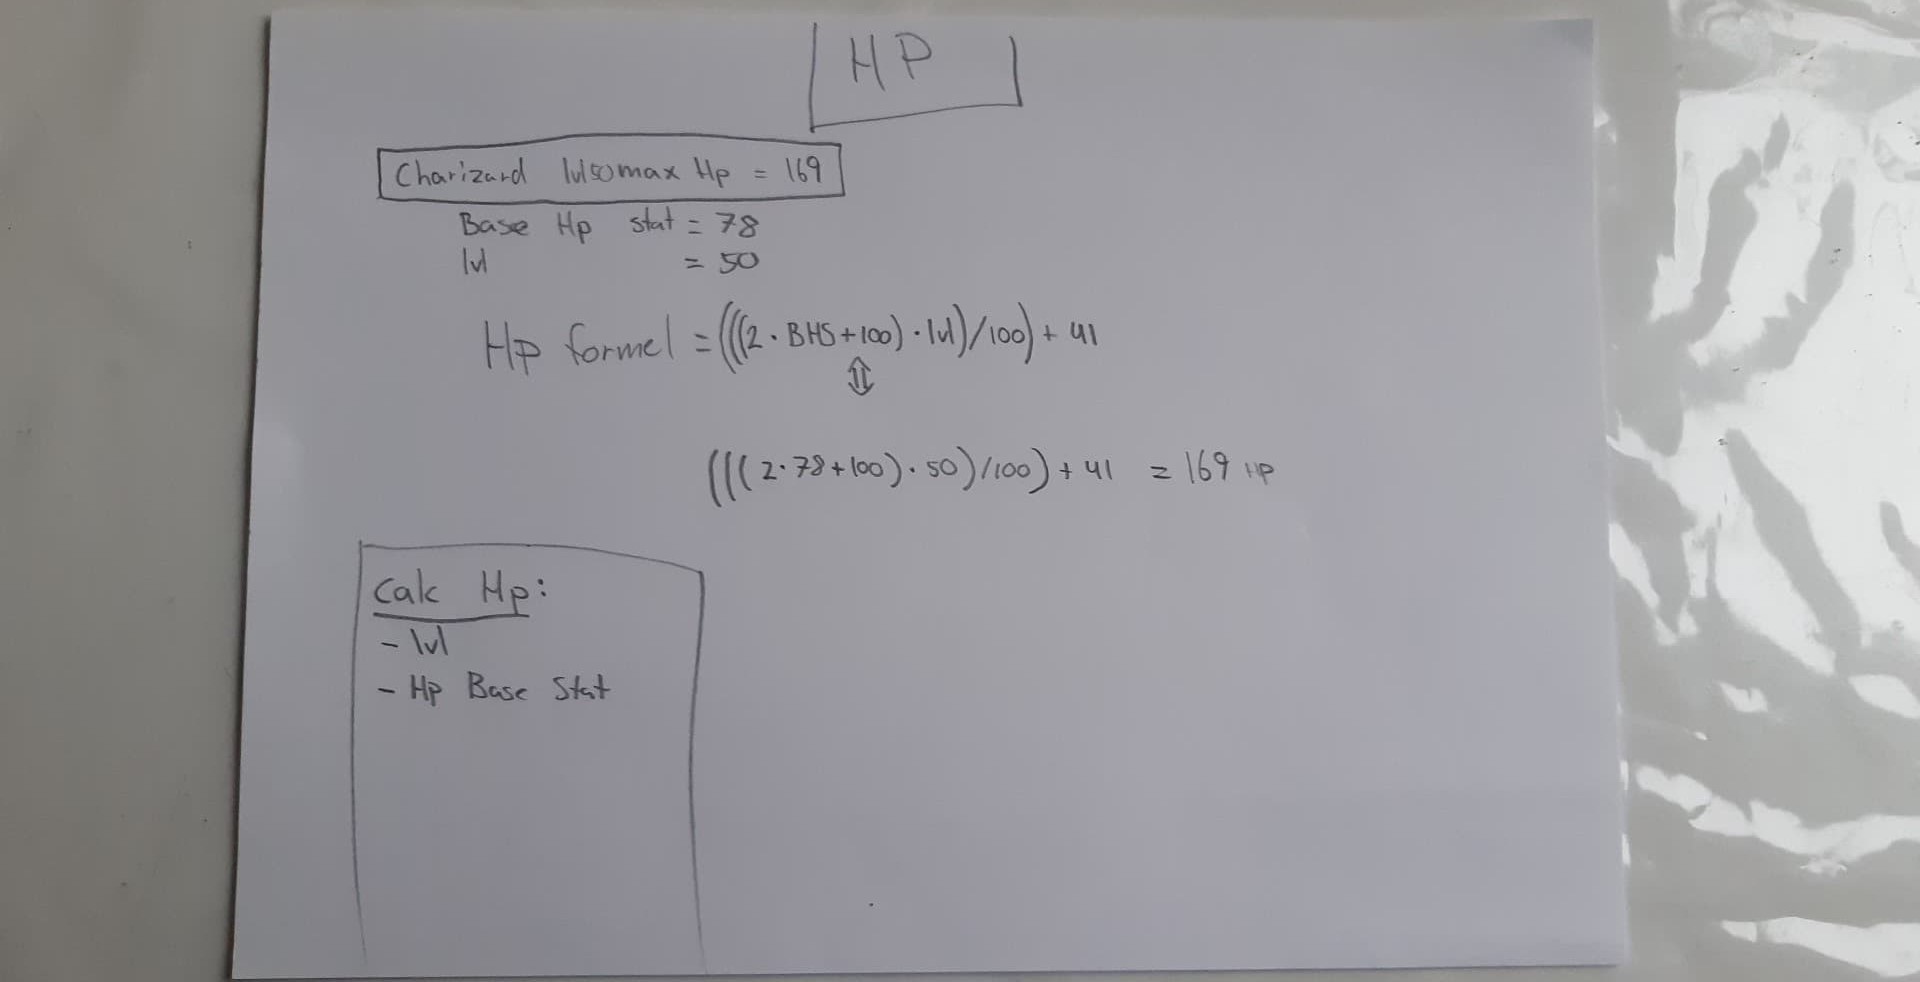 HP
Charizard lvl50 max Hp = 169
Base Hp stat = 78
lvl = 50
Hp formel = (((2 · BHS + 100) · lvl) / 100) + 41
⇕
(((2 · 78 + 100) · 50) / 100) + 41 = 169 HP
Calc Hp:
- lvl
- Hp Base Stat